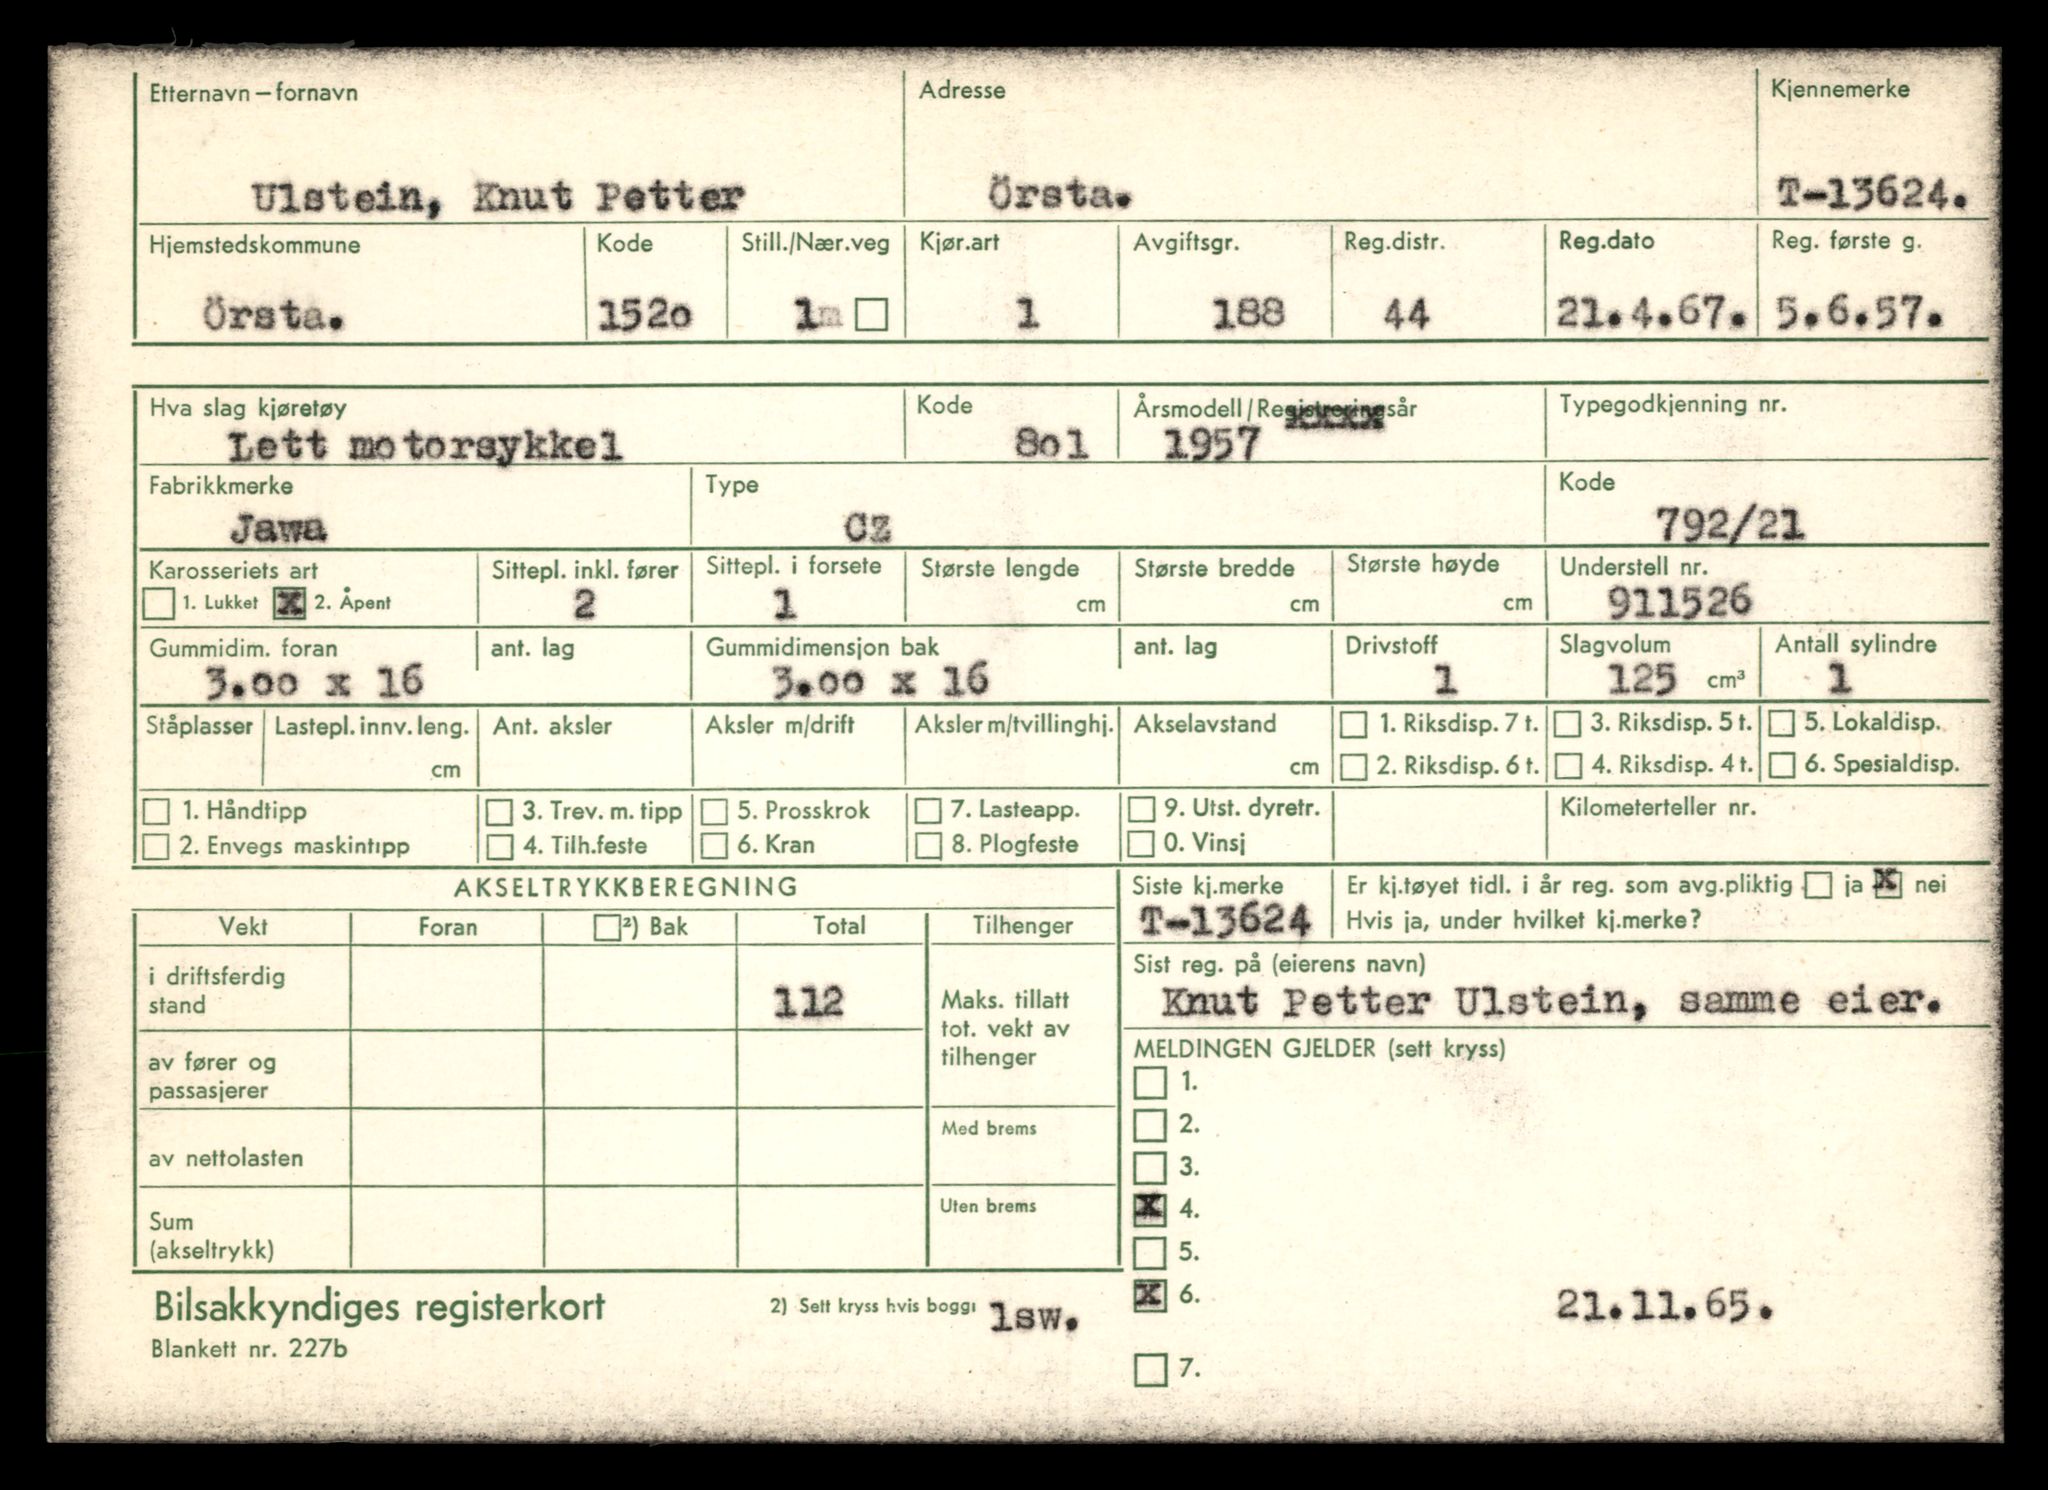 Etternavn – fornavn Adresse Kjennemerke
Ulstein, Knut Petter Örsta. T-13624.
Hjemstedskommune Kode Still./Nær.veg Kjør.art Avgiftsgr. Reg.distr. Reg.dato Reg. første g.
Örsta. 152o 1m 1 188 44 21.4.67. 5.6.57.
Hva slag kjøretøy Kode Årsmodell/Registreringsår Typegodkjenning nr.
Lett motorsykkel 8o1 1957
Fabrikkmerke Type Kode
Jawa CZ 792/21
Karosseriets art Sittepl. inkl. fører Sittepl. i forsete Største lengde Største bredde Største høyde Understell nr.
1. Lukket X 2. Åpent 2 1 cm cm cm 911526
Gummidim. foran ant. lag Gummidimensjon bak ant. lag Drivstoff Slagvolum Antall sylindre
3.oo x 16 3.oo x 16 1 125 cm³ 1
Ståplasser Lastepl. innv. leng. Ant. aksler Aksler m/drift Aksler m/tvillinghj. Akselavstand 1. Riksdisp. 7 t. 3. Riksdisp. 5 t. 5. Lokaldisp.
cm cm 2. Riksdisp. 6 t. 4. Riksdisp. 4 t. 6. Spesialdisp.
1. Håndtipp 3. Trev. m. tipp 5. Prosskrok 7. Lasteapp. 9. Utst. dyretr. Kilometerteller nr.
2. Envegs maskintipp 4. Tilh.feste 6. Kran 8. Plogfeste 0. Vinsj
AKSELTRYKKBEREGNING Siste kj.merke Er kj.tøyet tidl. i år reg. som avg.pliktig ja X nei
T-13624 Hvis ja, under hvilket kj.merke?
Vekt Foran ²) Bak Total Tilhenger
Sist reg. på (eierens navn)
i driftsferdig
stand 112 Maks. tillatt Knut Petter Ulstein, samme eier.
tot. vekt av
tilhenger MELDINGEN GJELDER (sett kryss)
av fører og 1.
passasjerer
Med brems 2.
av nettolasten 3.
Uten brems X 4.
Sum
(akseltrykk) 5.
Bilsakkyndiges registerkort 2) Sett kryss hvis boggi lsw. X 6. 21.11.65.
Blankett nr. 227b
7.